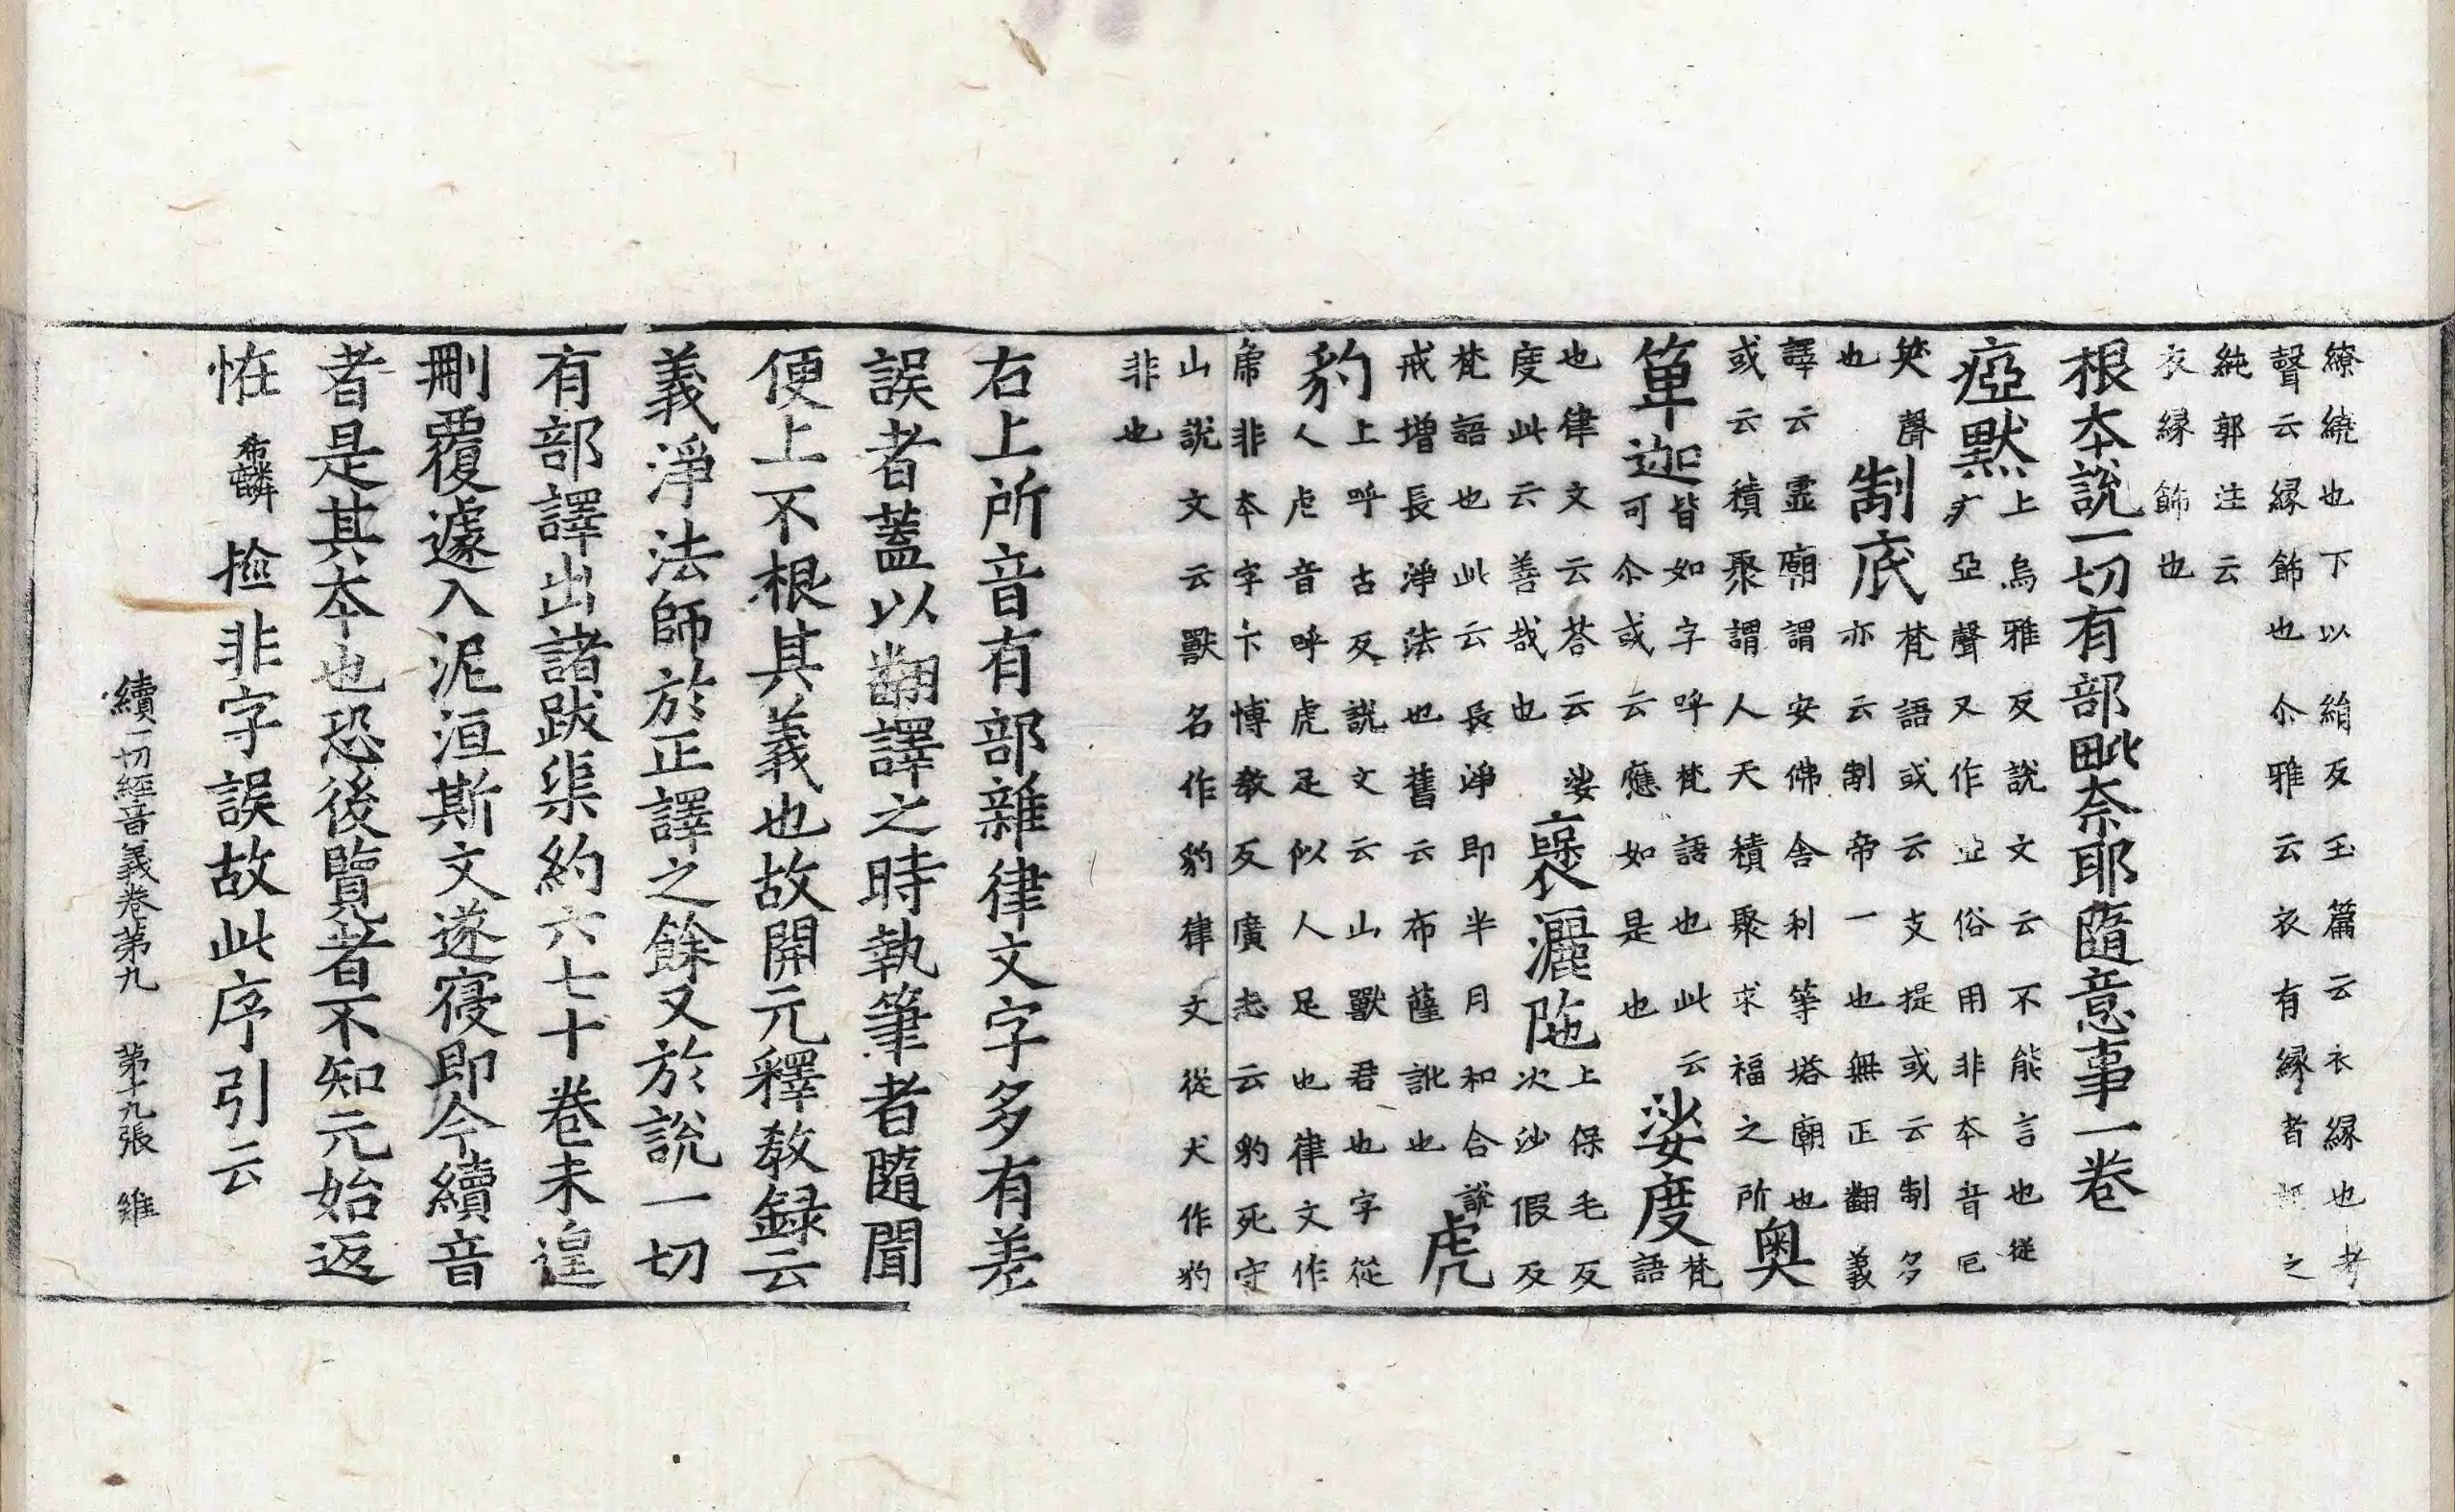 繚繞也下以絹反玉篇云衣縁也考
聲云縁飾也尒雅云衣有縁者謂之
純郭注云
衣縁飾也
根本說一切有部毗奈耶隨意事一卷
瘂默上烏雅反說文云不能言也從
疒亞聲又作亚俗用非本音厄
笑聲
也制底梵語或云支提或云制多
亦云制帝一也無正翻義
譯云靈廟謂安佛舍利等塔廟也
或云積聚謂人天積聚求福之所奧
箄迦皆如字呼梵語也此云
可尒或云應如是也娑度梵
語
也律文云荅云娑
度此云善哉也裦灑陁上保毛反
次沙假反
梵語也此云長淨即半月和合說
戒增長淨法也舊云布薩訛也虎
豹上呼古反說文云山獸君也字從
人虍音呼虎足似人足也律文作
乕非本字下博教反廣志云豹死守
山說文云獸名作豹律文從犬作犳
非也
右上所音有部雜律文字多有差
誤者蓋以翻譯之時執筆者隨聞
便上不根其義也故開元釋教録云
義淨法師於正譯之餘又於說一切
有部譯出諸跋渠約六七十卷未遑
刪覆遽入泥洹斯文遂寑即今續音
者是其本也恐後覽者不知元始返
恠希麟撿非字誤故此序引云
續一切經音義卷第九 第十九張 維